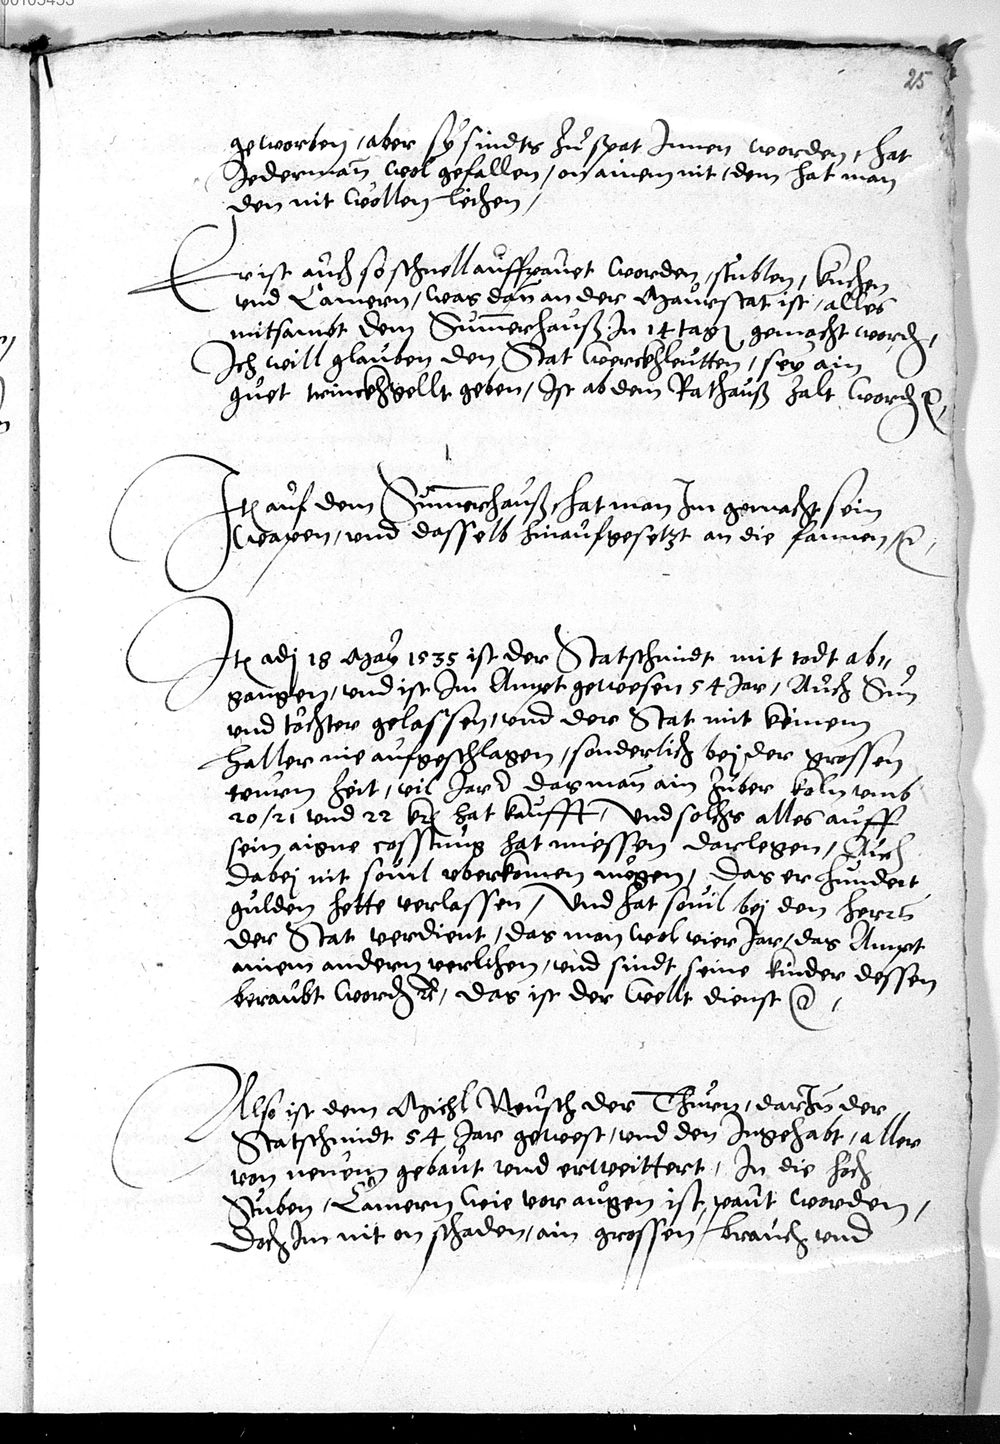 00105453
25
geworben, aber sÿ sindts zu spat Innen worden, hat
Jederman̄ wol gefallen, on ainem nit, dem hat man
den nit wöllen leichen,
Er ist auch so schnell auffpauet worden, stublen, kuchen
vnd Camern, was dan̄ an der Maurstat ist, alles
mitsambt dem Sum̄erhauß. In 14 tag gemacht word,
Ich will glauben den Stat Werckhleutten, seÿ ain
guet trinckhgellt geben, Ist ab dem Rathauß zalt word
Itē auf dem Sum̄erhauß, hat man Im gemacht sein
Wapen, vnd dasselb hinaufgesetzt an die fannen
Itē adj 18 Maÿ 1535 ist der Statschmidt mit todt ab„
gangen, vnd ist Im Ampt gewesen 54 Jar, Auch Sun
vnd töchter gelassen, vnd der Stat mit keinem
haller nie aufgeschlagen, sonderlich bej der grossen
teurn Zeit, vil Jar das man̄ ain Zuber koln vmb
20 / 21 vnd 22 kr hat kaufft, Vnd solchs alles auff
sein aigne cosstung hat miessen darlegen, Auch
dabej nit souil vberkomen mögen, das er hundert
gulden hette verlassen, Vnd hat souil bej den herrn
der Stat verdient, das man wol vier Jar, das Ampt
ainem andern verlihen, vnd sindt seine kinder dessen
beraubt word, das ist der Wellt dienst
Also ist dem Michl Reusch der Thurn, darIn̄ der
Statschmidt 54 Jar gewest, vnd den Ingehabt, aller
von neuem gebaut vnd erweittert, In die höch
Stuben, Camern wie vor augen ist, paut worden,
Doch Im nit on schaden, ain grossen brauch vnd